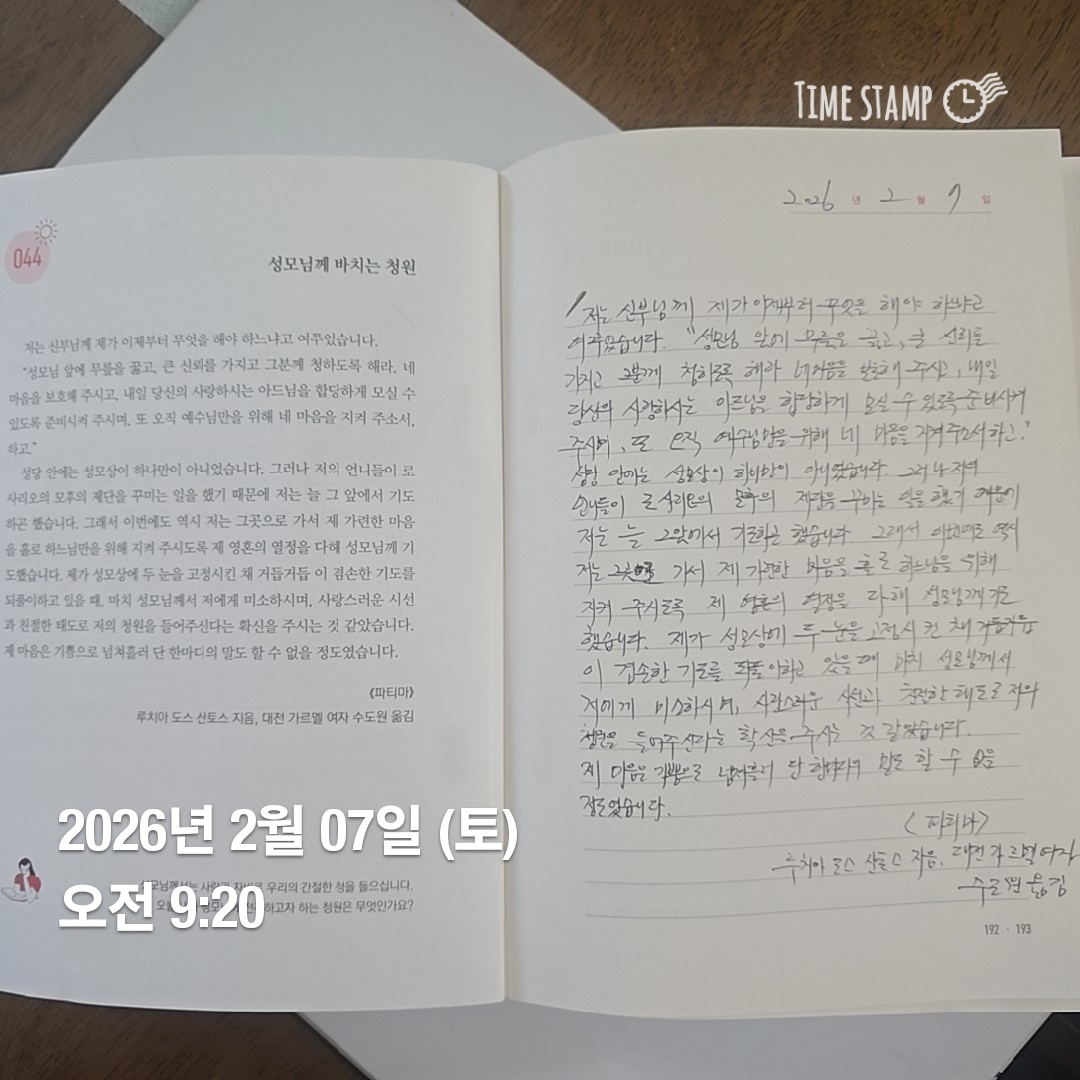 TIME STAMP
044
성모님께 바치는 청원
저는 신부님께 제가 이제부터 무엇을 해야 하느냐고 여쭈었습니다.
“성모님 앞에 무릎을 꿇고, 큰 신뢰를 가지고 그분께 청하도록 해라. 네
마음을 보호해 주시고, 내일 당신의 사랑하시는 아드님을 합당하게 모실 수
있도록 준비시켜 주시며, 또 오직 예수님만을 위해 네 마음을 지켜 주소서,
하고.”
성당 안에는 성모상이 하나만이 아니었습니다. 그러나 저의 언니들이 로
사리오의 모후의 제단을 꾸미는 일을 했기 때문에 저는 늘 그 앞에서 기도
하곤 했습니다. 그래서 이번에도 역시 저는 그곳으로 가서 제 가련한 마음
을 홀로 하느님만을 위해 지켜 주시도록 제 영혼의 열정을 다해 성모님께 기
도했습니다. 제가 성모상에 두 눈을 고정시킨 채 거듭거듭 이 겸손한 기도를
되풀이하고 있을 때, 마치 성모님께서 저에게 미소하시며, 사랑스러운 시선
과 친절한 태도로 저의 청원을 들어주신다는 확신을 주시는 것 같았습니다.
제 마음은 기쁨으로 넘쳐흘러 단 한마디의 말도 할 수 없을 정도였습니다.
《파티마》
루치아 도스 산토스 지음, 대전 가르멜 여자 수도원 옮김
우리의 간절한 청을 들으십니다.
하고자 하는 청원은 무엇인가요?
2026년 2월 07일 (토)
오전 9:20
2026 년 2 월 7 일
저는 신부님께 제가 이제부터 무엇을 해야 하느냐고
여쭈었습니다. "성모님 앞에 무릎을 꿇고, 큰 신뢰를
가지고 그분께 청하도록 해라 네 마음을 보호해 주시고, 내일
당신의 사랑하시는 아드님을 합당하게 모실 수 있도록 준비시켜
주시며, 또 오직 예수님만을 위해 네 마음을 지켜주소서 하고."
성당 안에는 성모상이 하나만이 아니었습니다. 그러나 저의
언니들이 로사리오의 모후의 제단을 꾸미는 일을 했기 때문에
저는 늘 그앞에서 기도하곤 했습니다. 그래서 이번에도 역시
저는 가서 제 가련한 마음을 홀로 하느님을 위해
지켜 주시도록 제 영혼의 열정을 다해 성모님께 기도
했습니다. 제가 성모상에 두 눈을 고정시킨 채 거듭거듭
이 겸손한 기도를 되풀이하고 있을 때 마치 성모님께서
저에게 미소하시며, 사랑스러운 시선과 친절한 태도로 저의
청원을 들어주신다는 확신을 주시는 것 같았습니다.
제 마음은 기쁨으로 넘쳐흘러 단 한마디의 말도 할 수 없을
정도였습니다.
<파티마>
루치아 도스 산토스 지음, 대전 가르멜 여자
수도원 옮김
192 · 193